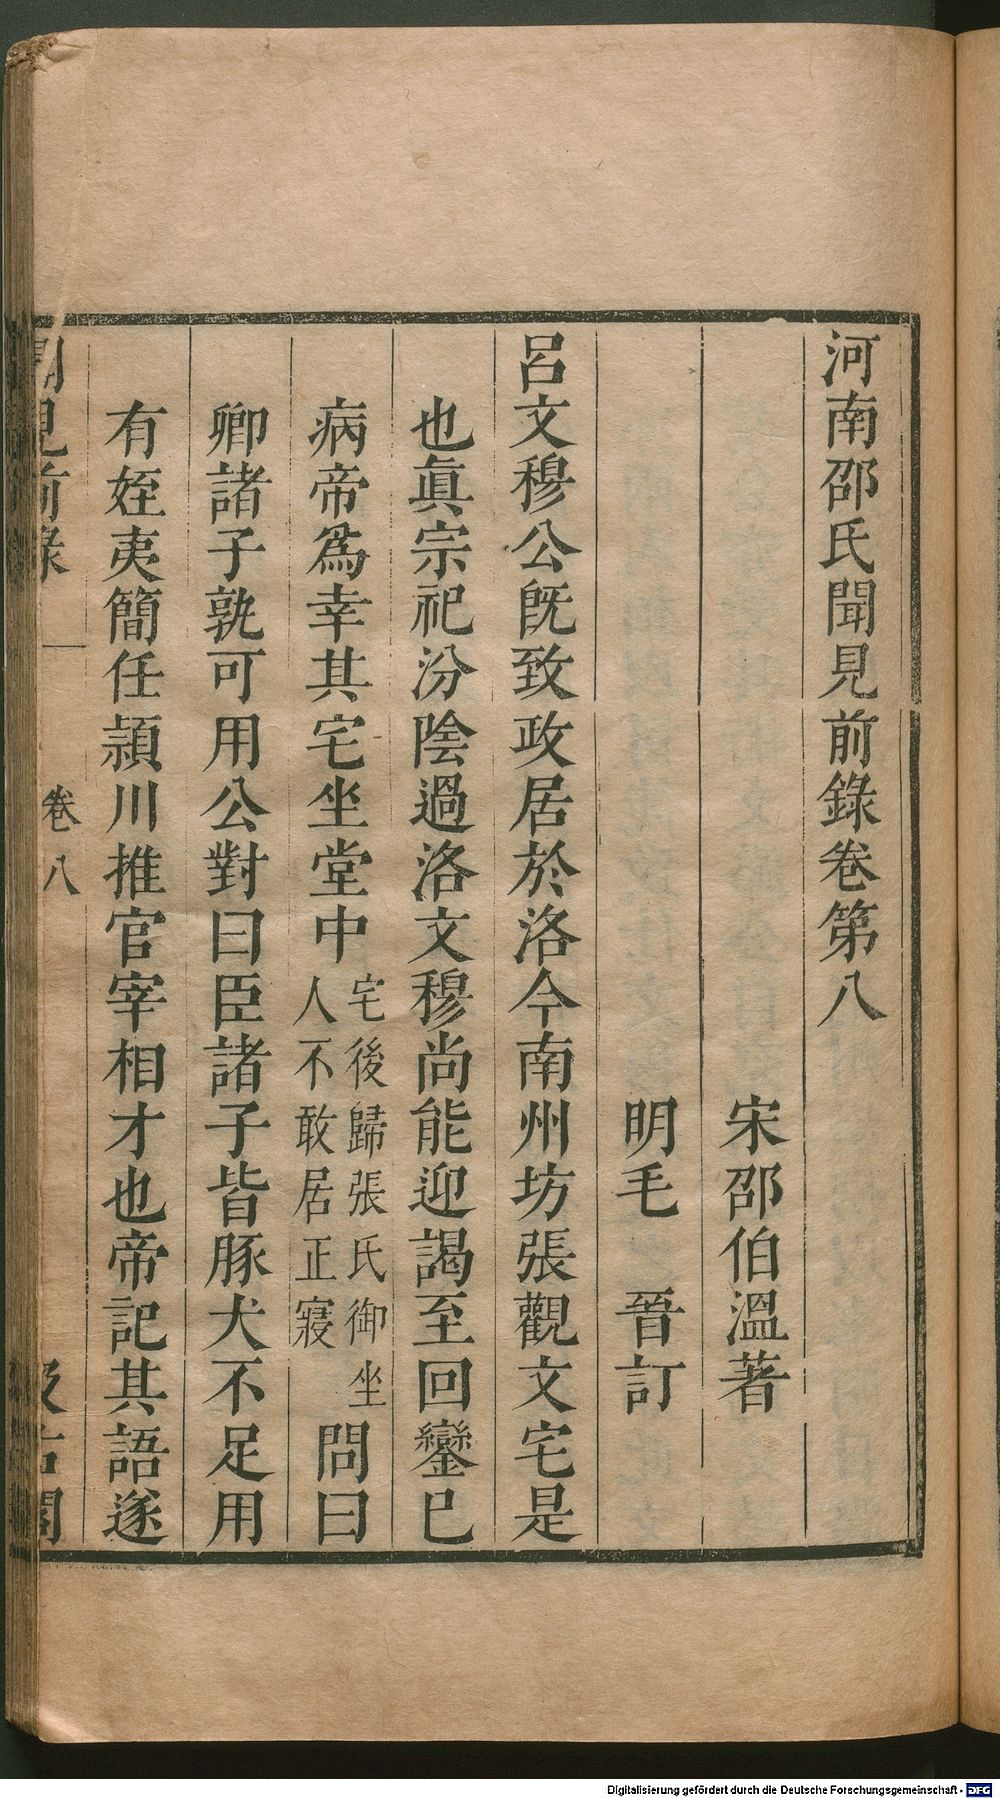 河南邵氏聞見前錄卷第八
宋邵伯溫著
明毛　晉訂
呂文穆公旣致政居於洛今南州坊張觀文宅是
也眞宗祀汾陰過洛文穆尚能迎謁至回鑾已
病帝爲幸其宅坐堂中宅後歸張氏御坐人不敢居正寢問曰
卿諸子孰可用公對曰臣諸子皆豚犬不足用
有姪夷簡任頴川推官宰相才也帝記其語遂
聞見前錄　一　卷八　汲古閣
Digitalisierung gefördert durch die Deutsche Forschungsgemeinschaft - DFG